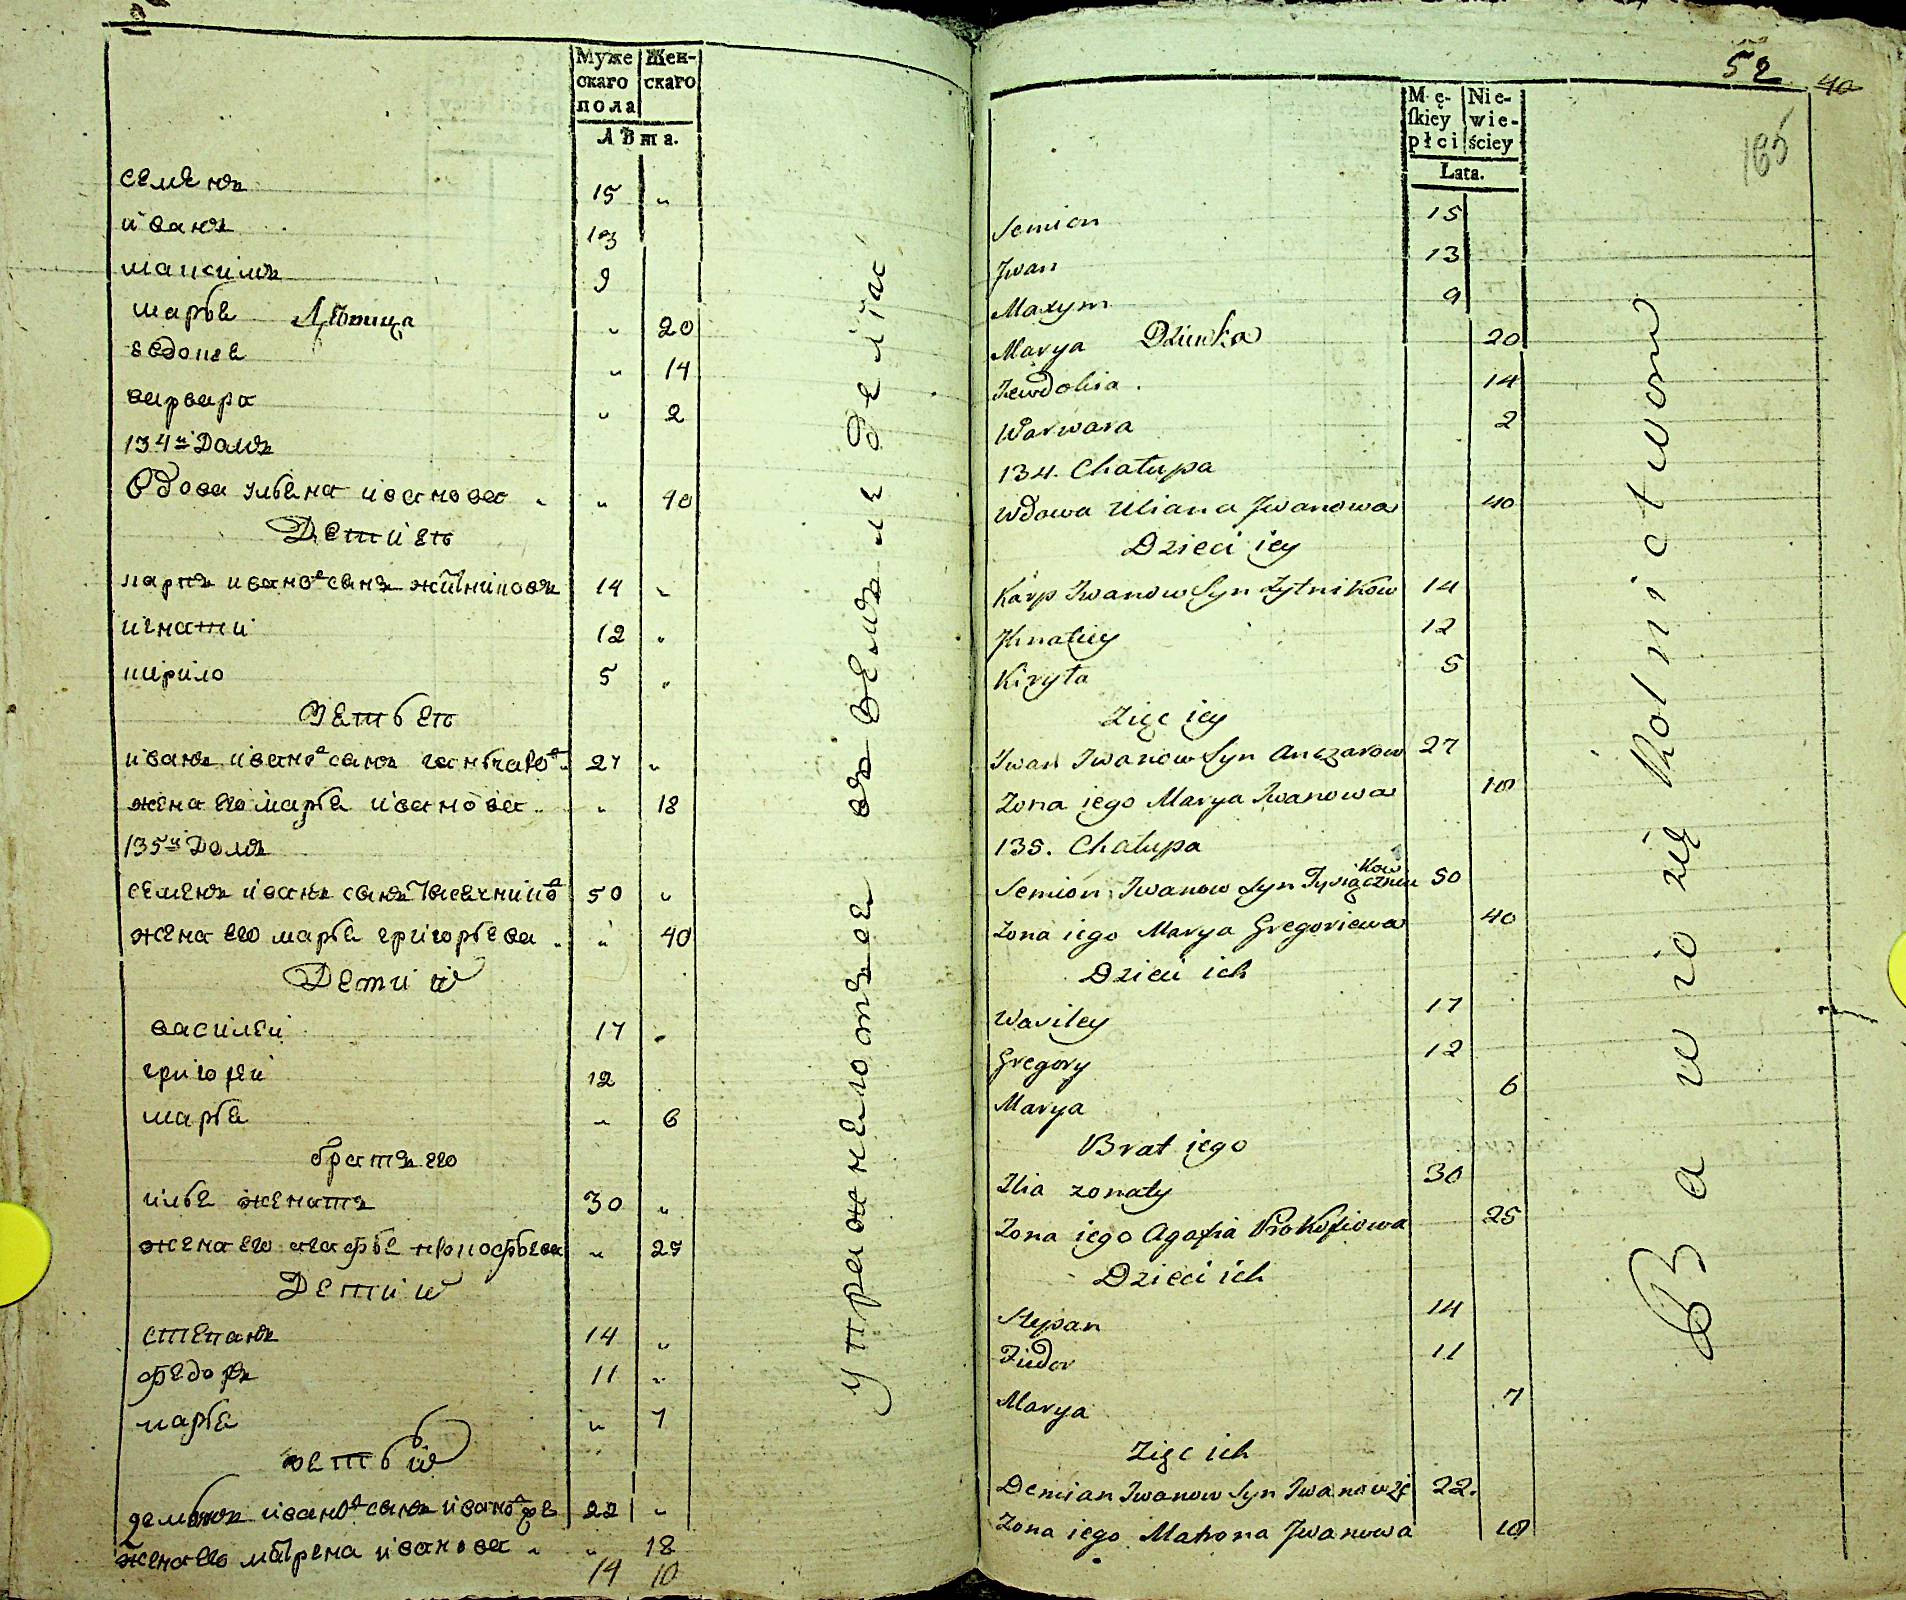 Муже Жен-
скаго скаго
пола
Лѣта.
семенъ 15 "
иванъ 13
максимъ 9
марья Дѣвица " 20
евдокея " 14
варвара " 2
134й Домъ
Вдова ульена иванова " 40
Дети еѣ
карпъ иванов сынъ житниковъ 14 "
игнатий 12 "
кирило 5 "
Зеть еѣ
иванъ иванов сынъ 27 "
жена его марья иванова " 18
135й Домъ
семенъ иванъ сынъ 50 "
жена его марья григорьева " 40
Дети их
василей 17 "
григорей 12
марья " 6
братъ его
илье женатъ 30 "
жена его агафье прокофьева " 25
Дети их
степанъ 14 "
федоръ 11 "
марья " 7
зеть их
демьянъ иванов сынъ 22 "
жена его матрена иванова " 18
14 10
упражнение отъ ее въ земле
52 40
165
Mę- Nie-
ſkiey wie-
płci ściey
Lata.
Semion 15
Jwan 13
Maxym 9
Marya Dziewka 20
Jewdokia 14
Warwara 2
134. Chałupa
Wdowa Uliana Jwanowa 40
Dzieci iey
Karp Jwanow Syn Zytnikow 14
Jhnatiey 12
Kiryła 5
Zięc iey
Jwan Jwanow Syn Anczarow 27
Zona iego Marya Jwanowa 18
135. Chałupa
Semion Jwanow Syn Tysiącznikow 50
Zona iego Marya Gregoriewa 40
Dzieci ich
Wasiley 17
Gregory 12
Marya 6
Brat iego
Ilia zonaty 30
Zona iego Agafia Prokofiowa 25
Dzieci ich
Stepan 14
Fiedor 11
Marya 7
Zięc ich
Demian Jwanow Syn 22.
Zona iego Matrona Jwanowa 18
Bawio się Rolnictwom